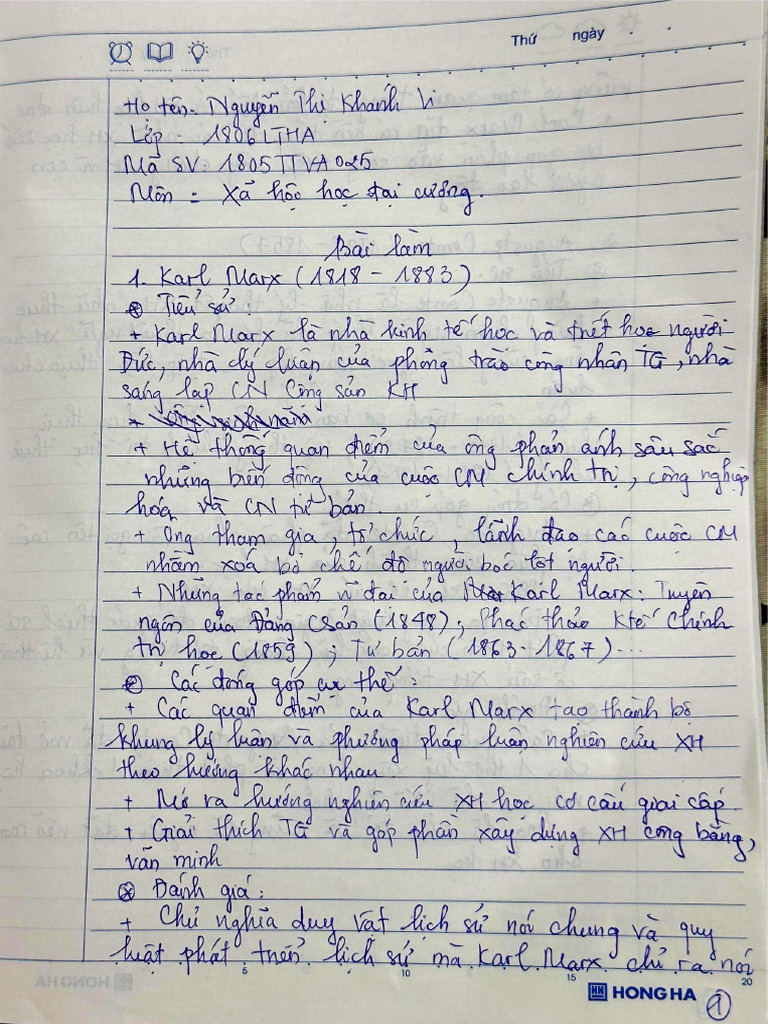 Thứ ngày
Họ tên: Nguyễn Thị Khánh Vi
Lớp : 1806LTHA
Mã SV: 1805TTVA025
Môn : Xã hội học đại cương.
Bài làm
1. Karl Marx (1818 - 1883)
⊛ Tiểu sử:
+ Karl Marx là nhà kinh tế học và triết học người
Đức, nhà lý luận của phong trào công nhân TG, nhà
sáng lập CN Cộng sản KH
+ Hệ thống quan điểm của ông phản ánh sâu sắc
những biến động của cuộc CM chính trị, công nghiệp
hóa và CN tư bản.
+ Ông tham gia, tổ chức, lãnh đạo các cuộc CM
nhằm xoá bỏ chế độ người bóc lột người.
+ Những tác phẩm vĩ đại của Karl Marx: Tuyên
ngôn của Đảng Csản (1848); Phác thảo Ktế Chính
trị học (1859); Tư bản (1863 - 1867)...
⊛ Các đóng góp cụ thể:
+ Các quan điểm của Karl Marx tạo thành bộ
khung lý luận và phương pháp luận nghiên cứu XH
theo hướng khác nhau
+ Mở ra hướng nghiên cứu XH học cơ cấu giai cấp
+ Giải thích TG và góp phần xây dựng XH công bằng,
văn minh
⊛ Đánh giá:
+ Chủ nghĩa duy vật lịch sử nói chung và quy
luật phát triển lịch sử mà Karl Marx chỉ ra nói
5 10 15 20
HONG HA
1